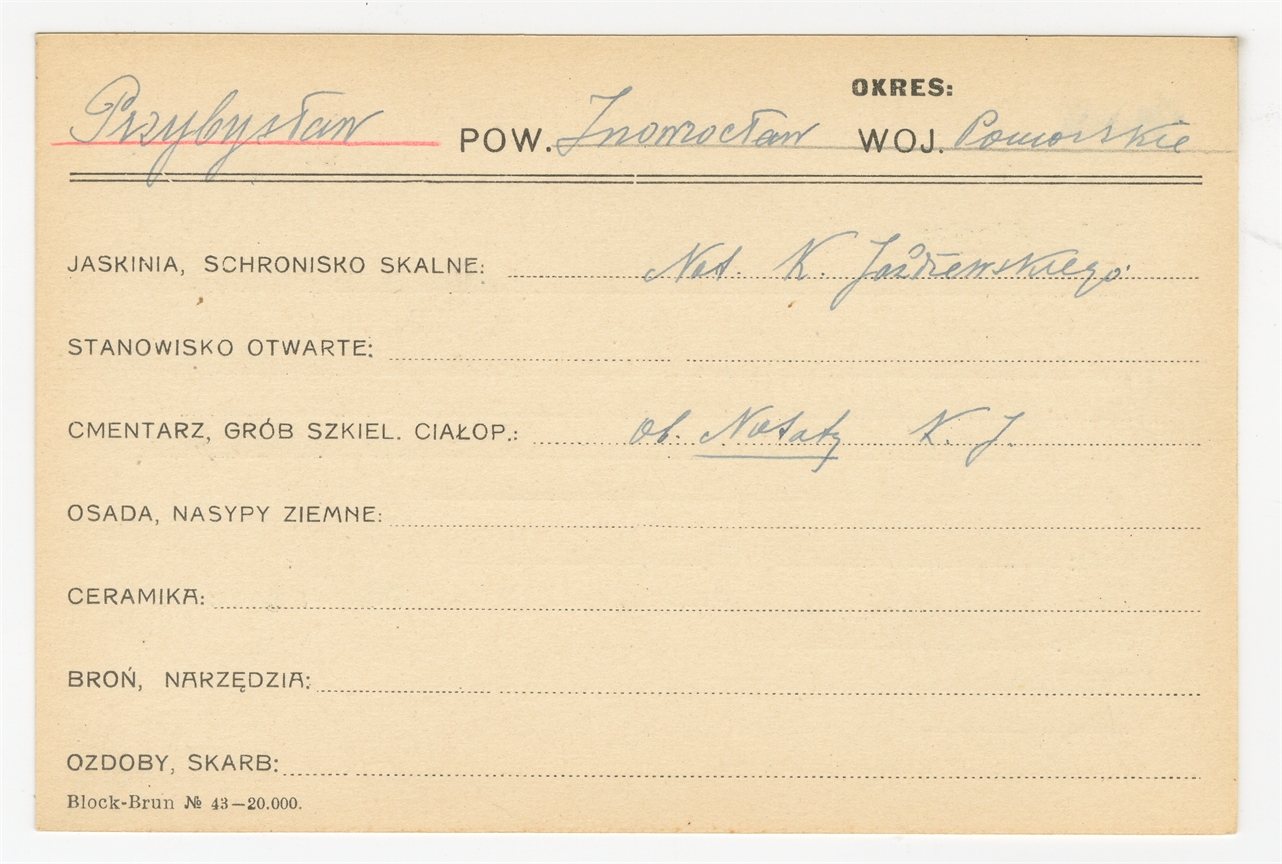 OKRES:
Przybysław POW. Inowrocław WOJ. Pomorskie
JASKINIA, SCHRONISKO SKALNE: Not. K. Jażdżewskiego
STANOWISKO OTWARTE:
CMENTARZ, GRÓB SZKIEL. CIAŁOP.: ob. Notaty K. J.
OSADA, NASYPY ZIEMNE:
CERAMIKA:
BROŃ, NARZĘDZIA:
OZDOBY, SKARB:
Block-Brun № 43—20.000.